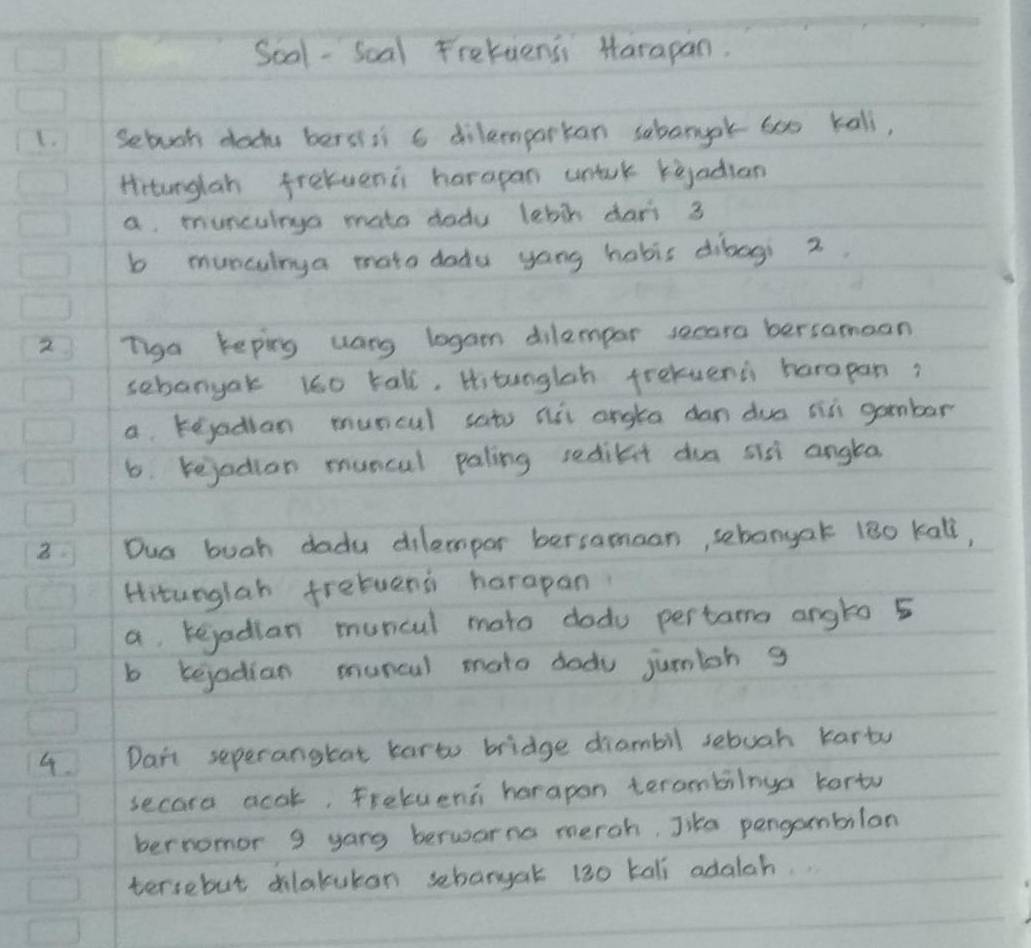 Soal - Soal Frekuensi Harapan.
1. Sebuah dadu bersisi 6 dilemparkan sebanyak 600 kali,
Hitunglah frekuensi harapan untuk kejadian
a. munculnya mata dadu lebih dari 3
b munculnya mata dadu yang habis dibagi 2.
2 Tiga keping uang logam dilempar secara bersamaan
sebanyak 160 kali. Hitunglah frekuensi harapan :
a. kejadian muncul satu sisi angka dan dua sisi gambar
b. kejadian muncul paling sedikit dua sisi angka
3. Dua buah dadu dilempar bersamaan, sebanyak 180 kali,
Hitunglah frekuensi harapan :
a. kejadian muncul mata dadu pertama angka 5
b kejadian muncul mata dadu jumlah 9
4. Dari seperangkat kartu bridge diambil sebuah kartu
secara acak. Frekuensi harapan terambilnya kartu
bernomor 9 yang berwarna merah. Jika pengambilan
tersebut dilakukan sebanyak 130 kali adalah ...